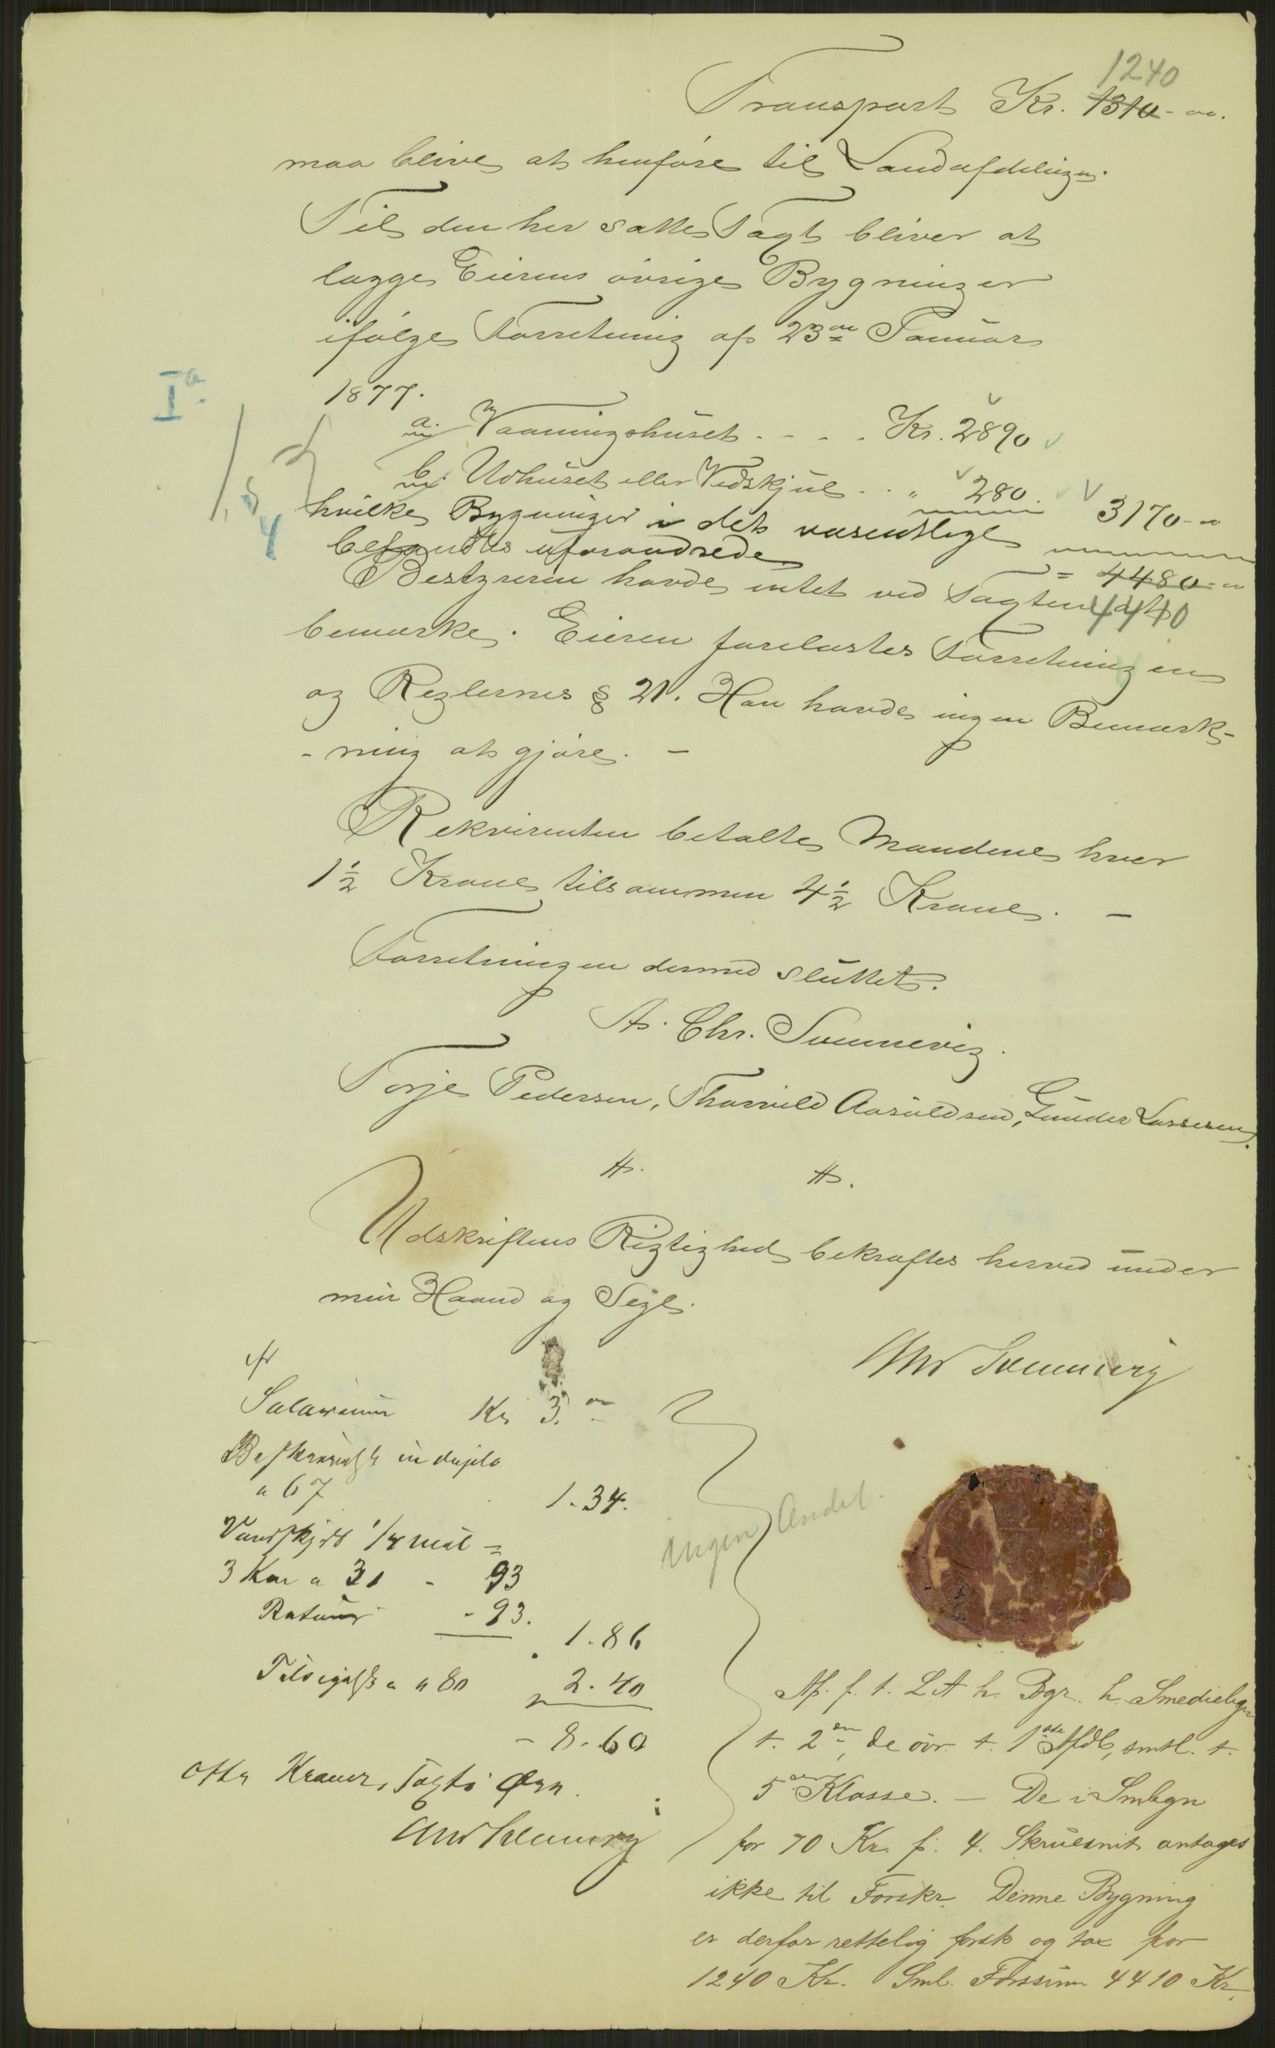 1240
Transport Kr. 1310 - „.
maa blive at henføre til Landafdelingen.
Til den her satte Taxt bliver at
lægge Eierens øvrige Bygninger
ifølge Forretning af 23de Januar
1877.
Ia.
a. Vaaningshuset . - . . Kr. 2890
b. Udhuset eller Vedskjul . . „ 280. 3170 - „
hvilke Bygninger i det væsentlige
befandtes uforandrede = 4480 - „
Bestyreren havde intet ved Taxten at
4410
bemærke. Eieren forelæstes Forretningen
og Reglernes § 21. Han havde ingen Bemærk-
- ning at gjøre. -
Rekvirenten betalte Mændene hver
1½ Krone tilsammen 4½ Krone. -
Forretningen dermed sluttet.
A. Chr. Svennevig.
Torje Pedersen, Thorvild Aasuldsen, Gunder Lassesen.
Udskriftens Rigtighed bekræftes herved under
min Haand og Segl.
And Svennevig
Salarium Kr 3. „
Beskrivelse in duplo
a 67 1.34.
Vandskyds ¼ Mil =
3 Kar a 31 - 93
Retour - 93.
1.86
a 80 2.40
- 8.60
otte Kroner, Øre.
And Svennevig
Ingen Andel.
Af. f. t. L A h. Bgr. h. Smediebgn
t. 2den, de øvr. t. 1ste Afdl, smtl. t.
5te Klasse. — De i Smbgn
for 70 Kr. f. 4. Skruesnit antages
ikke til Forskr. Denne Bygning
er derfor rettelig forsk og tax for
1240 Kr. Sml. Forssum 4410 Kr.